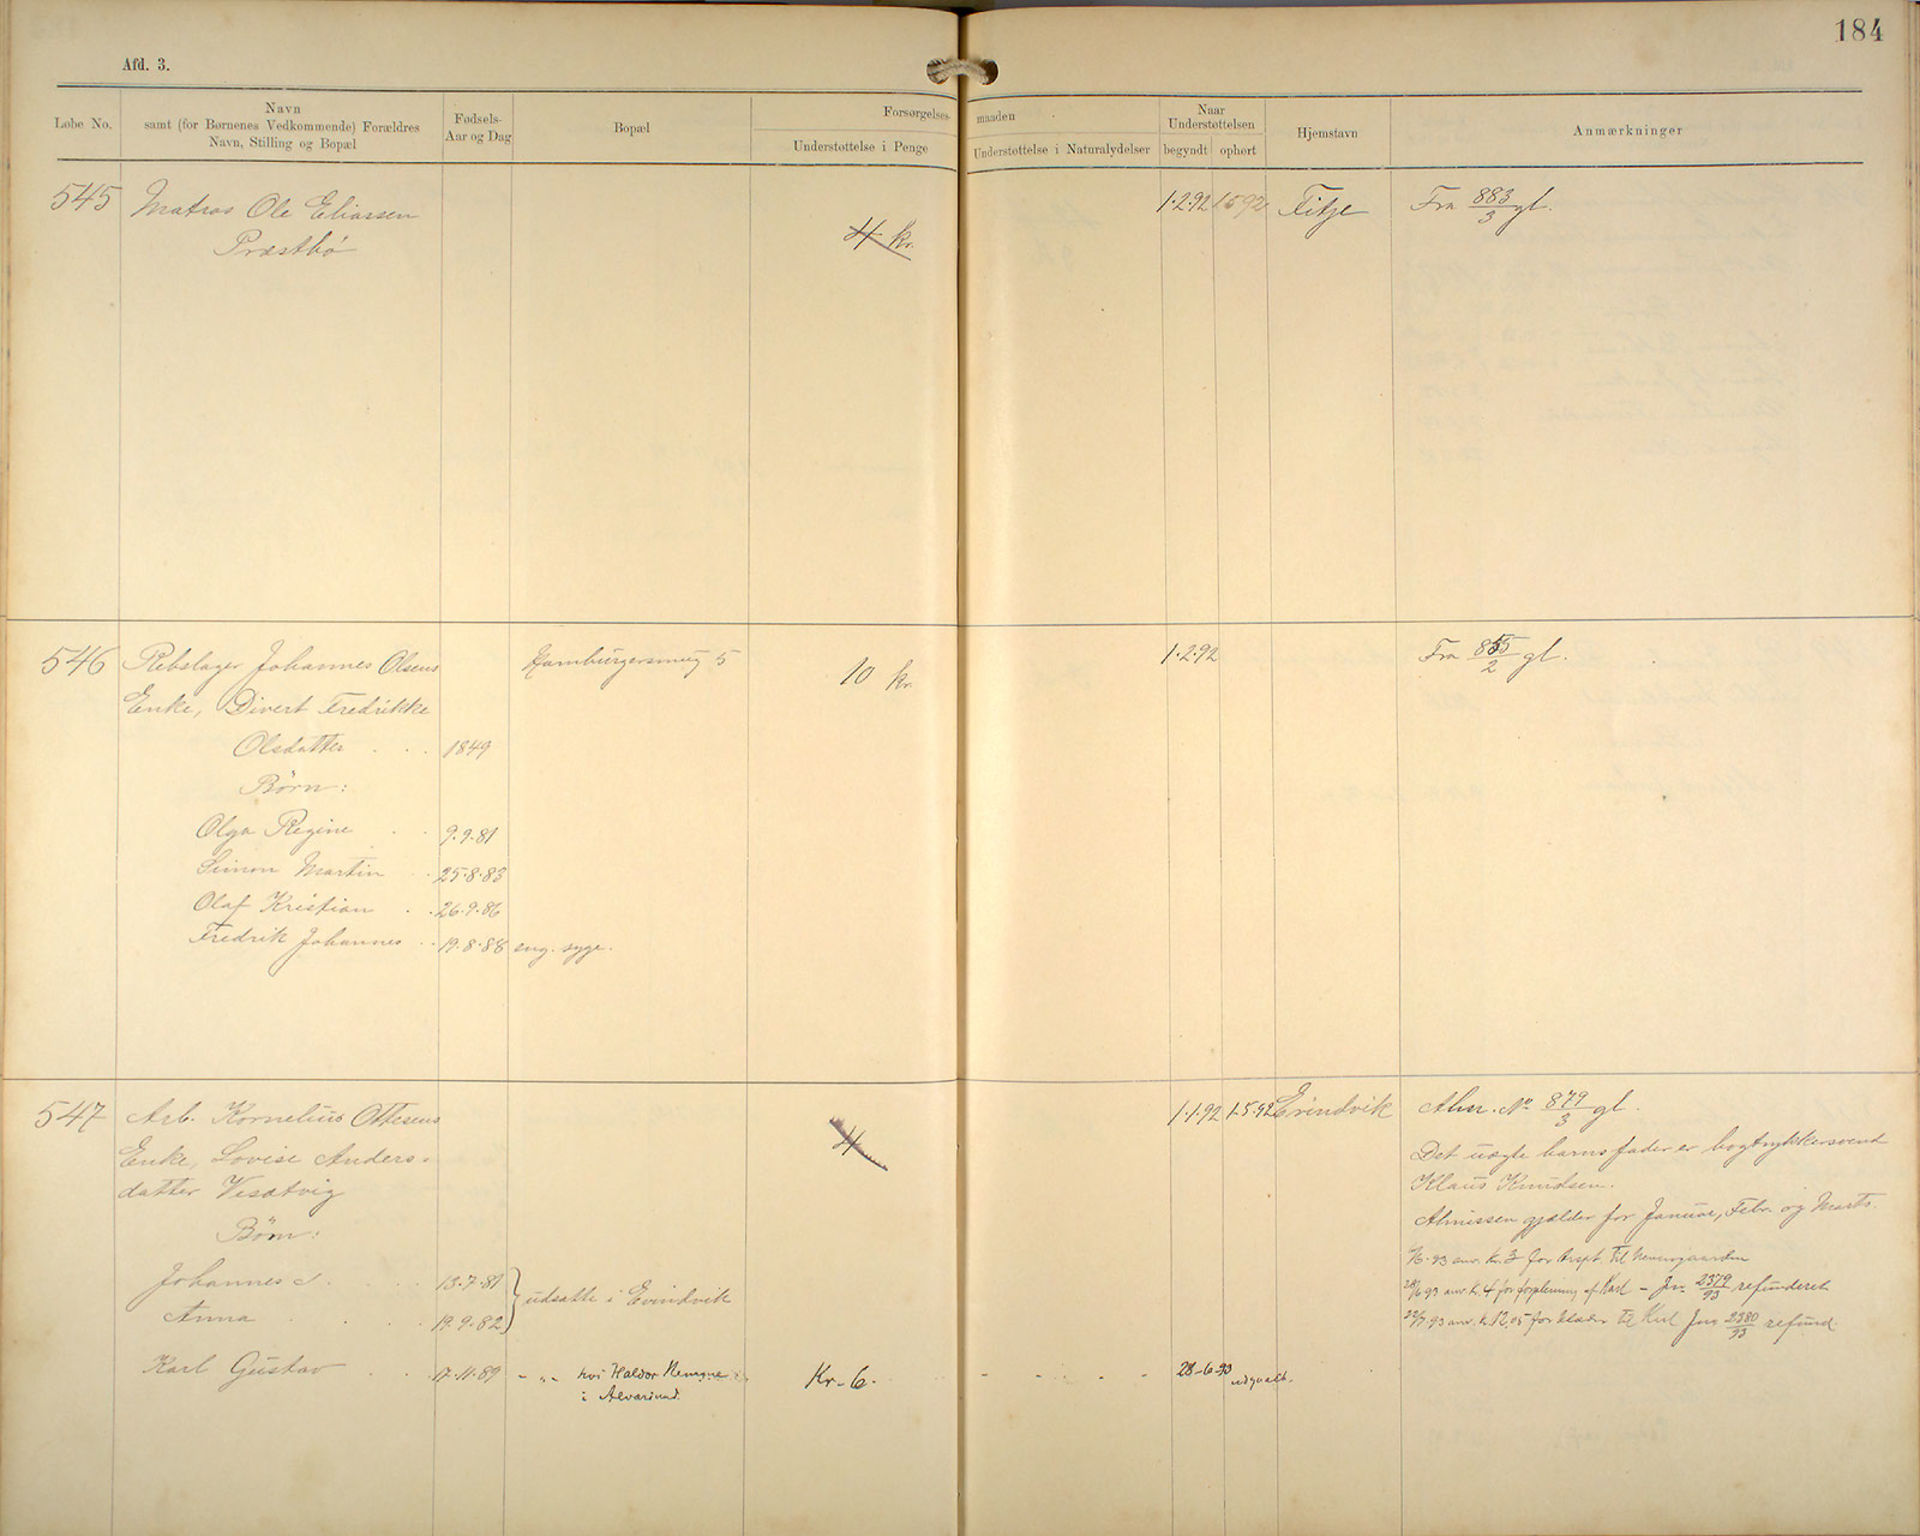 184
Afd. 3.
Løbe No.
Navn
samt (for Børnenes Vedkommende) Forældres
Navn, Stilling og Bopæl
Fødsels-
Aar og Dag
Bopæl
Forsørgelses-
maaden
Understøttelse i Penge
Understøttelse i Naturalydelser
Naar
Understøttelsen
begyndt
ophørt
Hjemstavn
Anmærkninger
545
Matros Ole Eliassen
Præstbö
4 kr.
1.2.92
1 5 92
Fitje
Fra 883/3 gl.
546
Rebslager Johannes Olsens
Enke, Divert Fredrikke
Olsdatter . . . 1849
Börn:
Olga Regine . . 9.9.81
Simon Martin . . 25.8.83
Olaf Kristian . . 26.9.86
Fredrik Johannes . . 19.8.88 eng. syge.
Hamburgersmug 5
10 kr.
1.2.92
Fra 855/2 gl.
547
Arb. Kornelius Ottesens
Enke, Lovise Anders-
datter
Börn:
Johannes . . . 13.7.81
Anna . . . . 19.9.82
udsatte i Evindvik
Karl Gustav . . . 17.11.89
hos Haldor
i
4
Kr. 6.
1.1.92
1.5.92
Evindvik
28-6-93
Alm. No 879/3 gl.
Det uægte barns fader er bogtrykkersvend
Klaus Knudsen.
Almissen gjælder for Januar, Febr. og Marts.
93 anv. kr. 3 for
93 anv. kr. 4 for forpleining af Karl - Jn. 2379/93 refunderet
93 anv. kr. 12,05 for klæder til Karl Jn. 2380/93 refund.